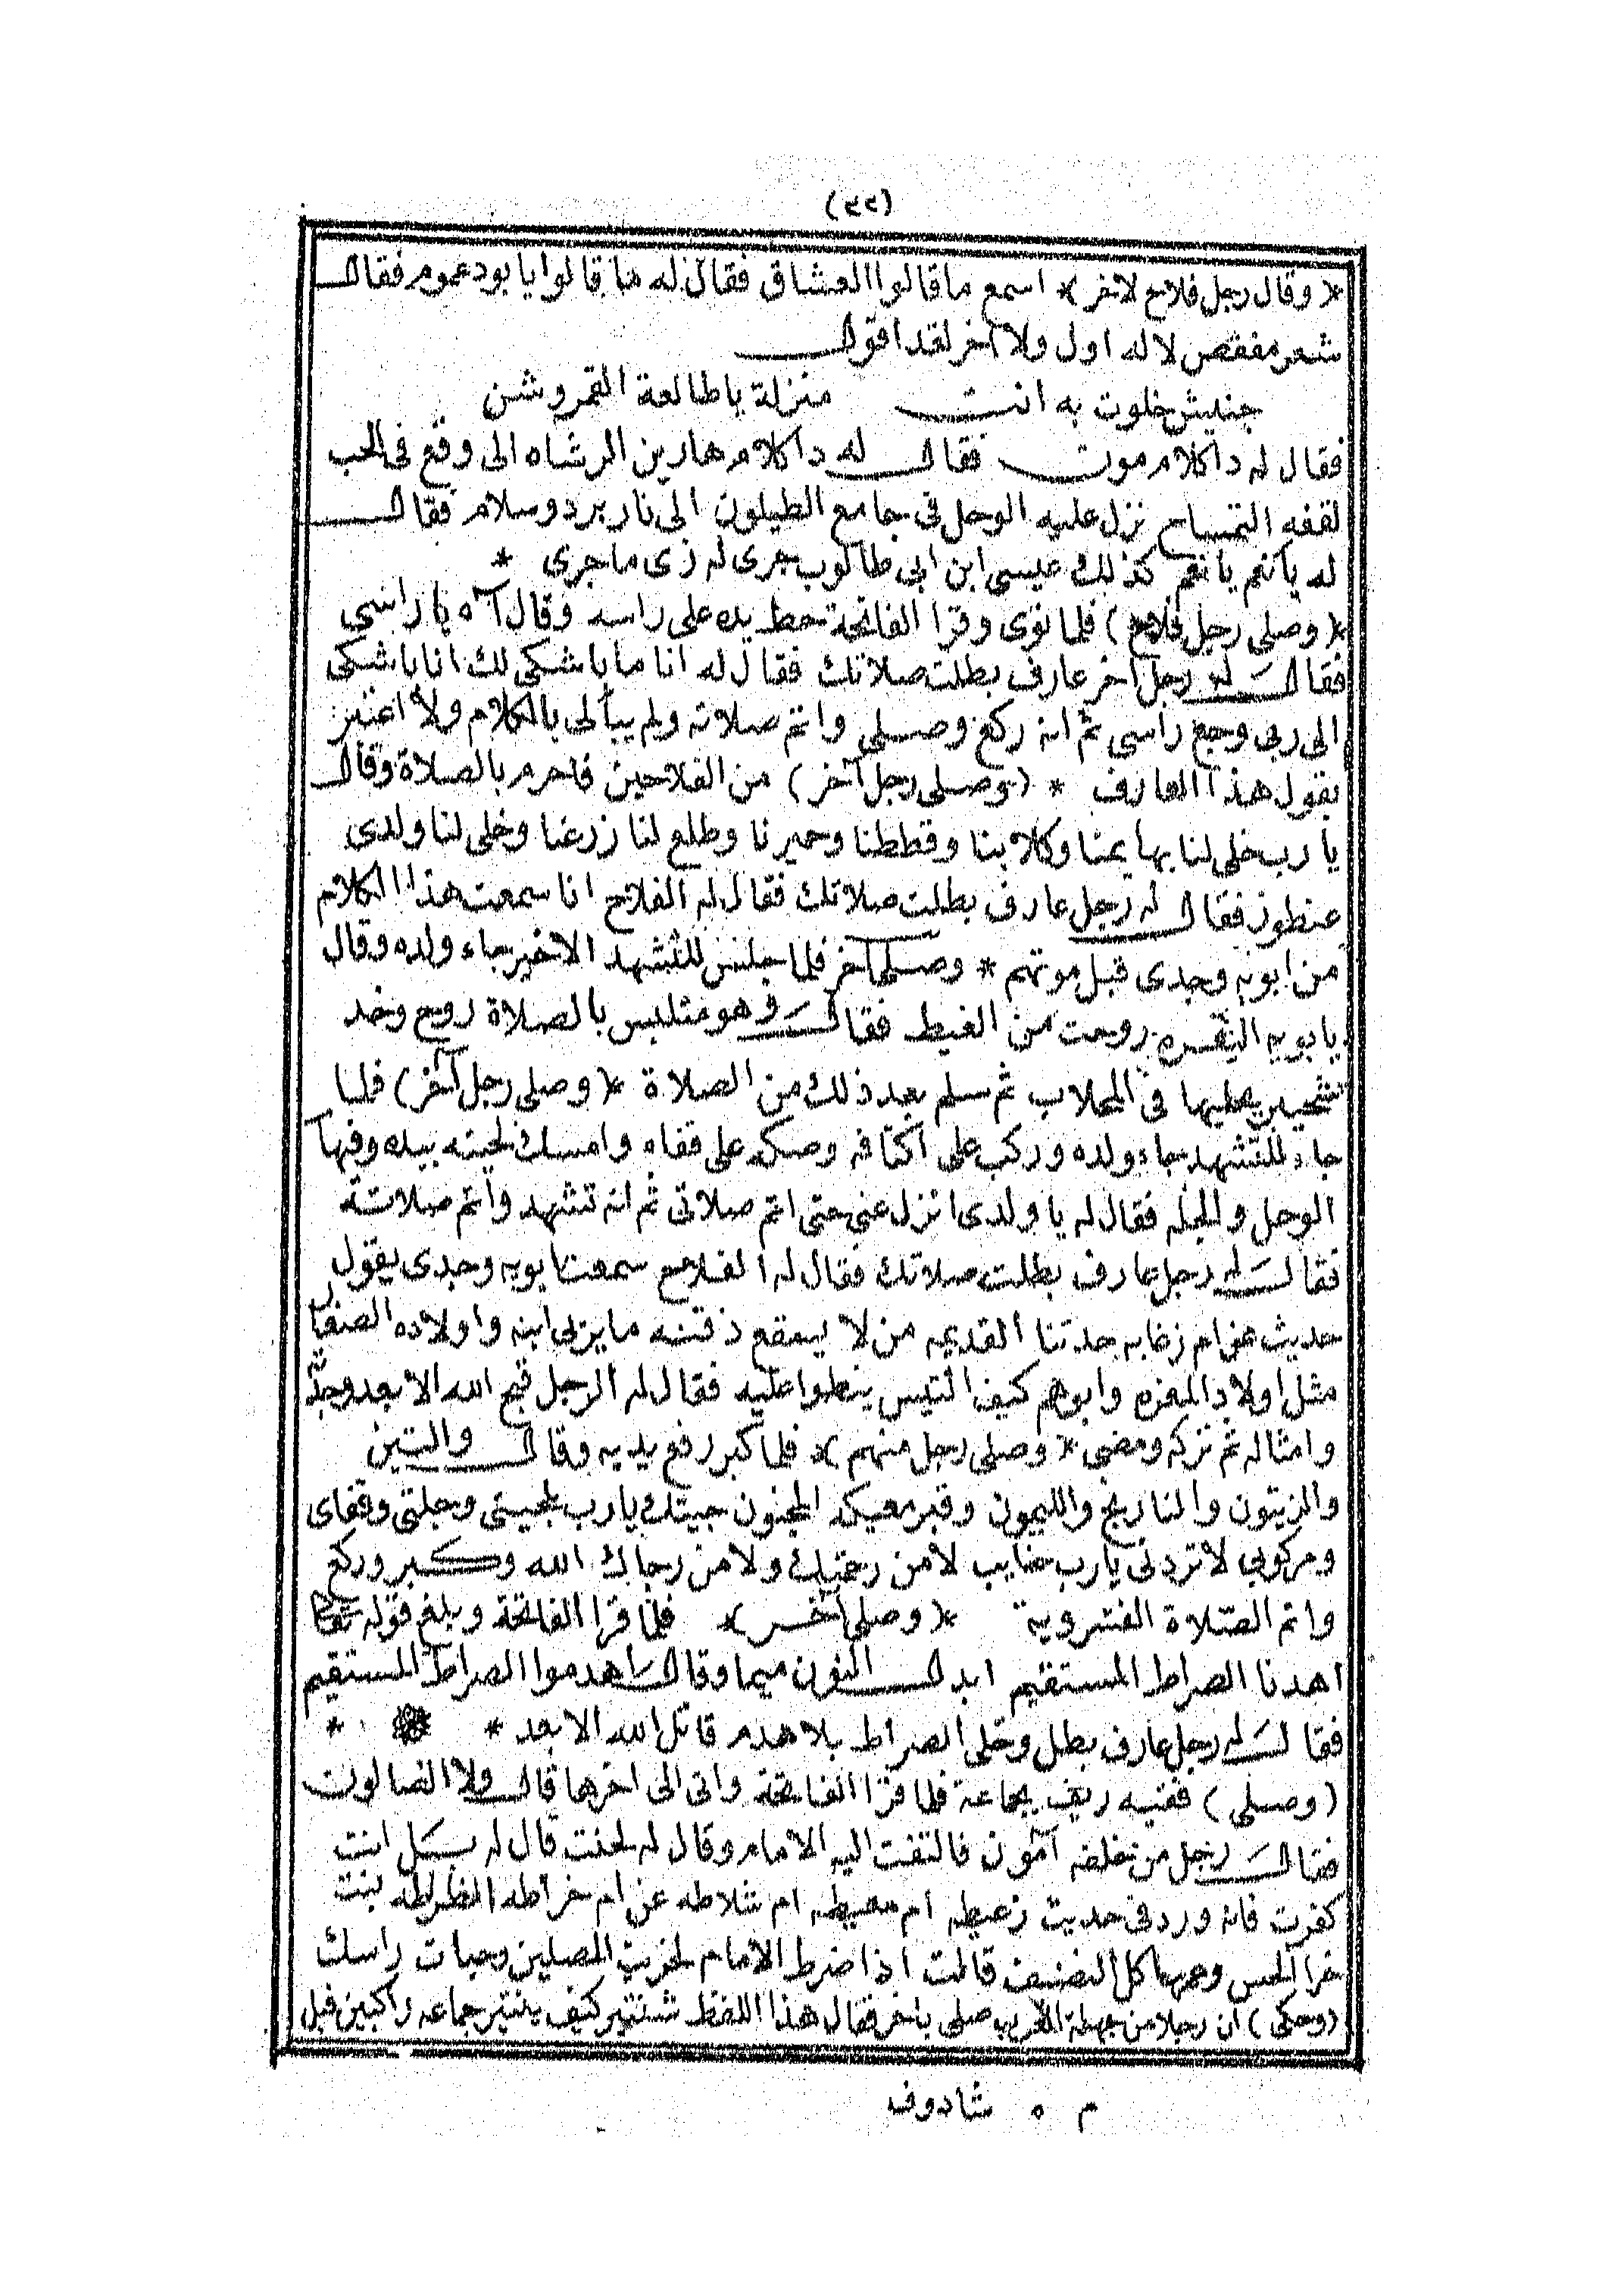 * وقال رجل فلاح لاخر * اسمع ما قالوا العشاق فقال له ما قالوا يا بو دعموم فقال
شعر مفقص لا له اول ولا آخر لقد اقول
جنليش خلوت به انت منزلة يا طالعة القمر وشن
فقال له دا كلام موت فقال له دا كلام هارين الرشاه الى وقع فى الحب
لقفه التمساح نزل عليه الوحل فى جامع الطيلون الى نار برد وسلام فقال
له يا نعم يا نعم كذلك عيسى ابن ابى طالوب جرى له زى ما جرى *
* (وصلى رجل فلاح) فلما نوى وقرا الفاتحة حط يده على راسه وقال آه يا راسى
فقال له رجل آخر عارف بطلت صلاتك فقال له انا ما باشكى لك انا باشكى
الى ربى وجع راسى ثم انه ركع وصلى واتم صلاته ولم يبالى بالكلام ولا اعتبر
بقول هذا العارف * (وصلى رجل آخر) من الفلاحين فاحرم بالصلاة وقال
يا رب خلى لنا بهايمنا وكلابنا وقططنا وحميرنا وطلع لنا زرعنا وخلى لنا ولدى
عنطوز فقال له رجل عارف بطلت صلاتك فقال له الفلاح انا سمعت هذا الكلام
من ابويه وجدى قبل موتهم * وصلى آخر فلما جلس للتشهد الاخير جاء ولده وقال
يا بويه البقره روحت من الغيط فقال وهو متلبس بالصلاة روح وخد
يحلبها فى المحلاب ثم سلم بعد ذلك من الصلاة * (وصلى رجل آخر) فلما
جاء للتشهد جاء ولده وركب على اكتافه وصكه على قفاه وامسك لحيته بيده وفيها
الوحل والجله فقال له يا ولدى انزل عنى حتى اتم صلاتى ثم انه تشهد واتم صلاته
فقال له رجل عارف بطلت صلاتك فقال له الفلاح سمعت ابويه وجدى يقول
حديث عن ام زغابه جدتنا القديمه من لا يسقع دقنه ما يربى ابنه واولاده الصغار
مثل اولاد المعزه وابوهم كيف التيس ينطوا عليه فقال له الرجل قبح الله الابعد وجده
وامثاله ثم تركه ومضى * (وصلى رجل منهم) * فلما كبر رفع يديه وقال والتين
والزيتون والنارنج والليمون وقبر معيكه المجنون جيتك يا رب بلحيتى وجلتى وقفاى
ومركوبى لا تردنى يا رب خايب لا من رحمتك ولا من رجابك الله وكبر وركع
واتم الصلاة الفشروية * (وصلى آخر) * فلما قرا الفاتحة وبلغ قوله تعالى
اهدنا الصراط المستقيم ابدل النون ميما وقال اهدموا الصراط المستقيم
فقال له رجل عارف بطل وخلى الصراط بلا هدم قاتل الله الابعد * *
(وصلى) فقيه ريف بجماعة فلما قرا الفاتحة واتى الى اخرها قال ولا الضالون
فقال رجل من خلفه آمون فالتفت اليه الامام وقال له لحنت قال له بل انت
كفرت فانه ورد فى حديث زعيط ام معيط ام شلاطه عن ام خراطه الظراطه بنت
خرا الحس وعمها كل النضيف قالت اذا ضرط الامام لخريت المصلين وحيات راسك
(وحكى) ان رجلا من صلى باخر فقال هذا اللفظ شنتير كيف ينتير جماعه راكبين فيل
م ٥ شادوف